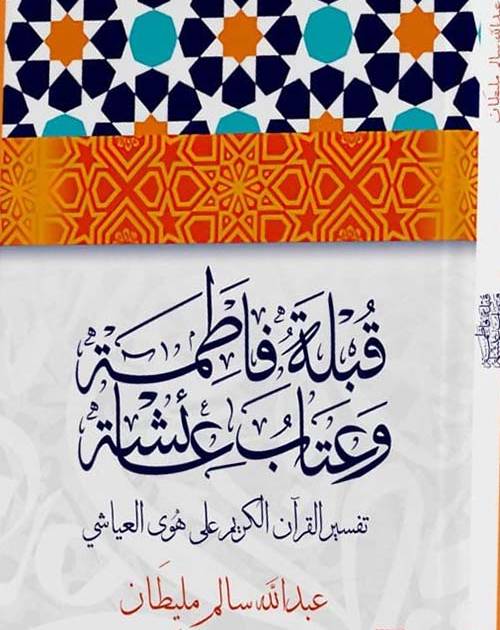 قُبْلَةُ فَاطِمَة
وَعِتَابُ عَائِشَة
تفسير القرآن الكريم على هوى العياشي
عبدالله سالم مليطان
عبدالله سالم مليطان
قبلة فاطمة
وعتاب عائشة